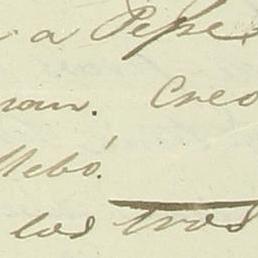 a Pepe
Creo
llebó.
los tres